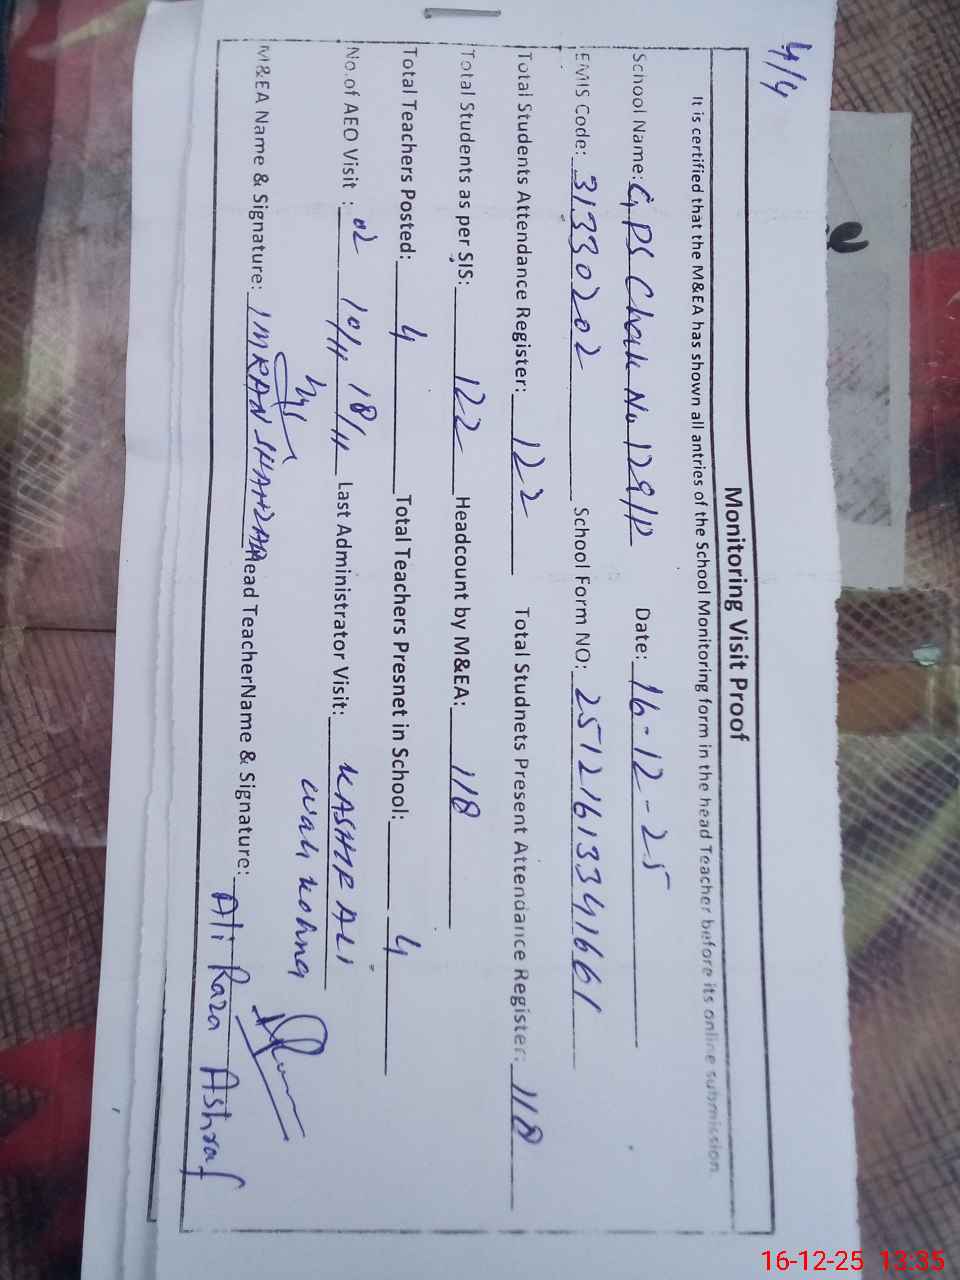 4/4
Monitoring Visit Proof
It is certified that the M&EA has shown all antries of the School Monitoring form in the head Teacher before its online submission.
School Name: GPS Chak No 129/P Date: 16-12-25
EMIS Code: 31330202 School Form NO: 25121613341661
Total Students Attendance Register: 122 Total Studnets Present Attendance Register: 118
Total Students as per SIS: 122 Headcount by M&EA: 118
Total Teachers Posted: 4 Total Teachers Presnet in School: 4
No.of AEO Visit : 02 10/11 18/11 Last Administrator Visit: KASHIF ALI
M&EA Name & Signature: IMRAN SHAHZAD Head TeacherName & Signature: Ali Raza Ashraf
16-12-25 13:35